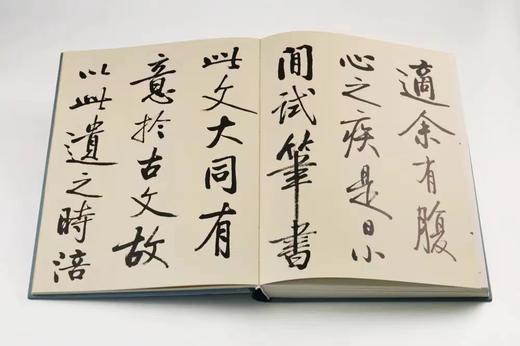 適余有腹
心之疾是日小
間試筆書
此文大同有
意於古文故
以此遺之時涪